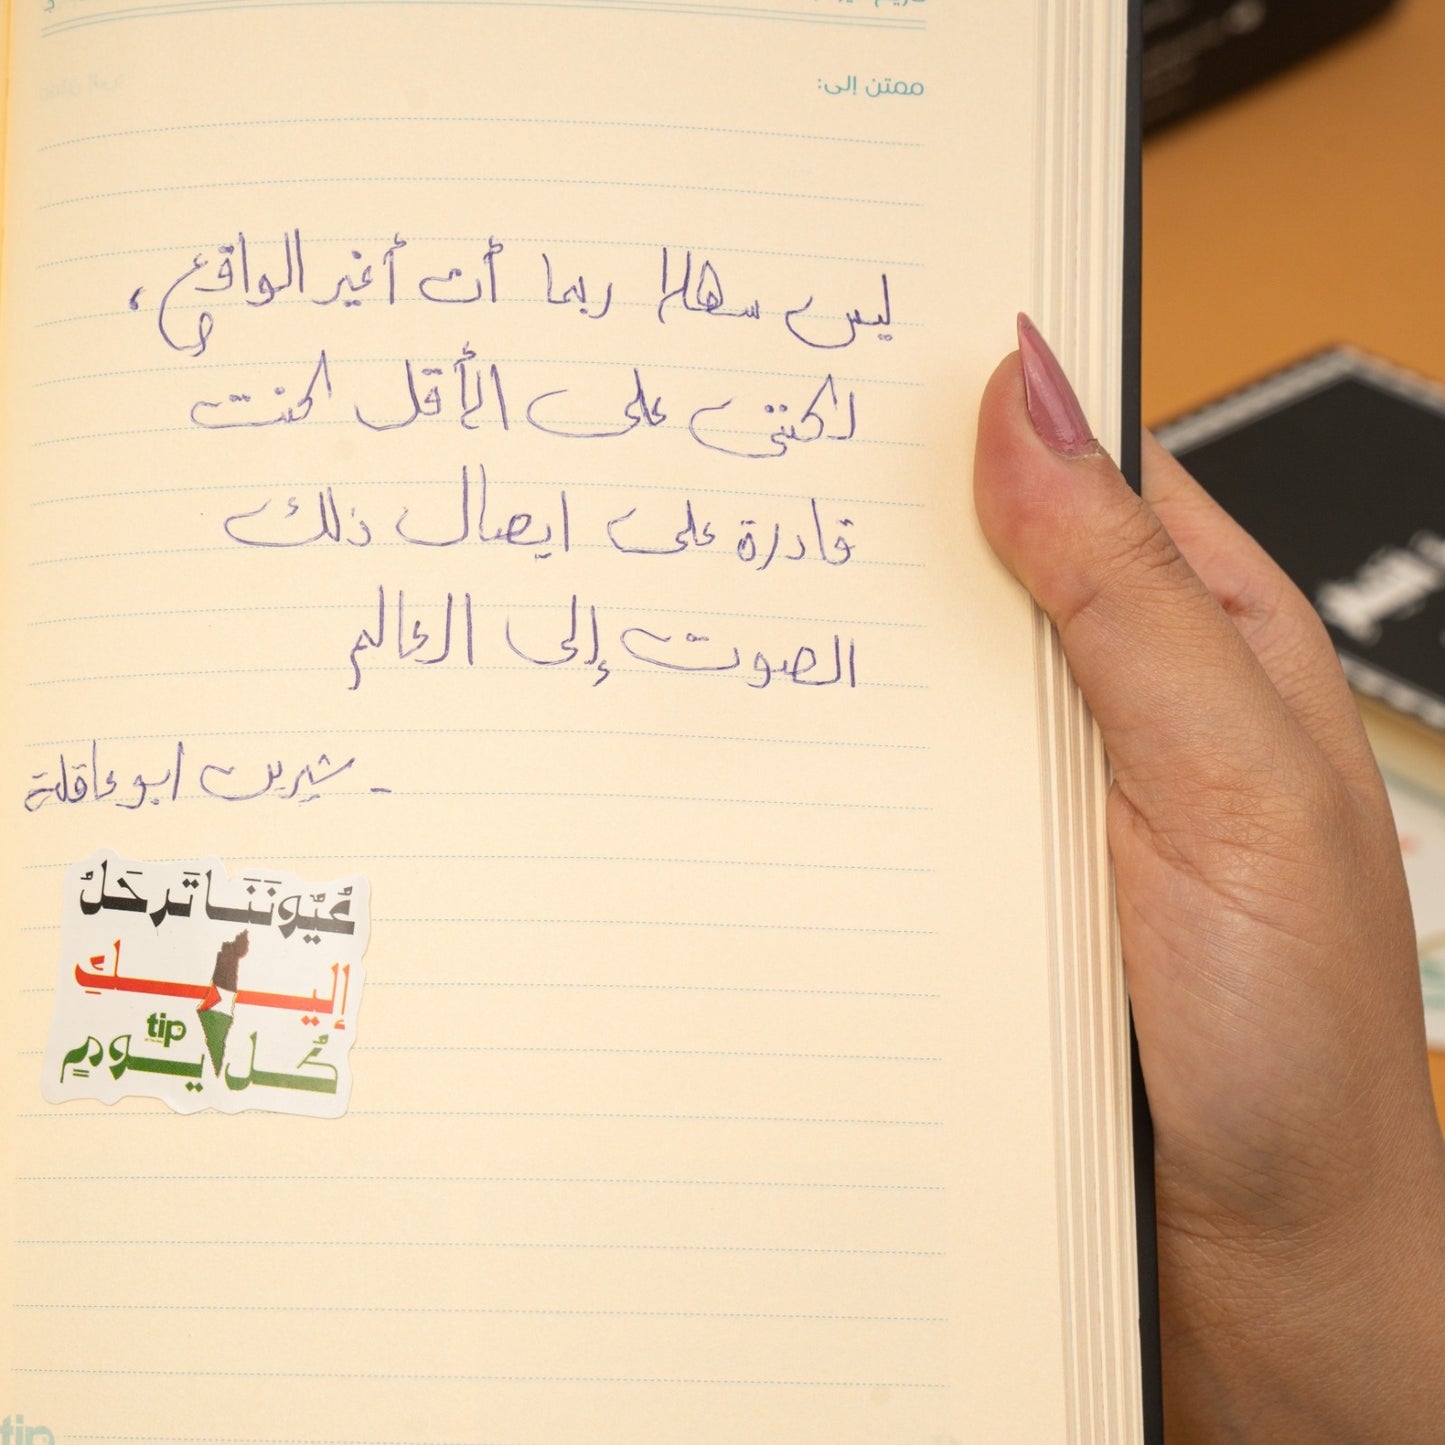 ممتن إلى:
ليس سهلا ربما أن أغير الواقع،
لاكنني على الأقل كنت
قادرة على ايصال ذلك
الصوت إلى العالم
- شيرين ابو عاقلة
عُيُونَنَا تَرحَلُ
إليكِ
tip
كُل يَومٍ
tip